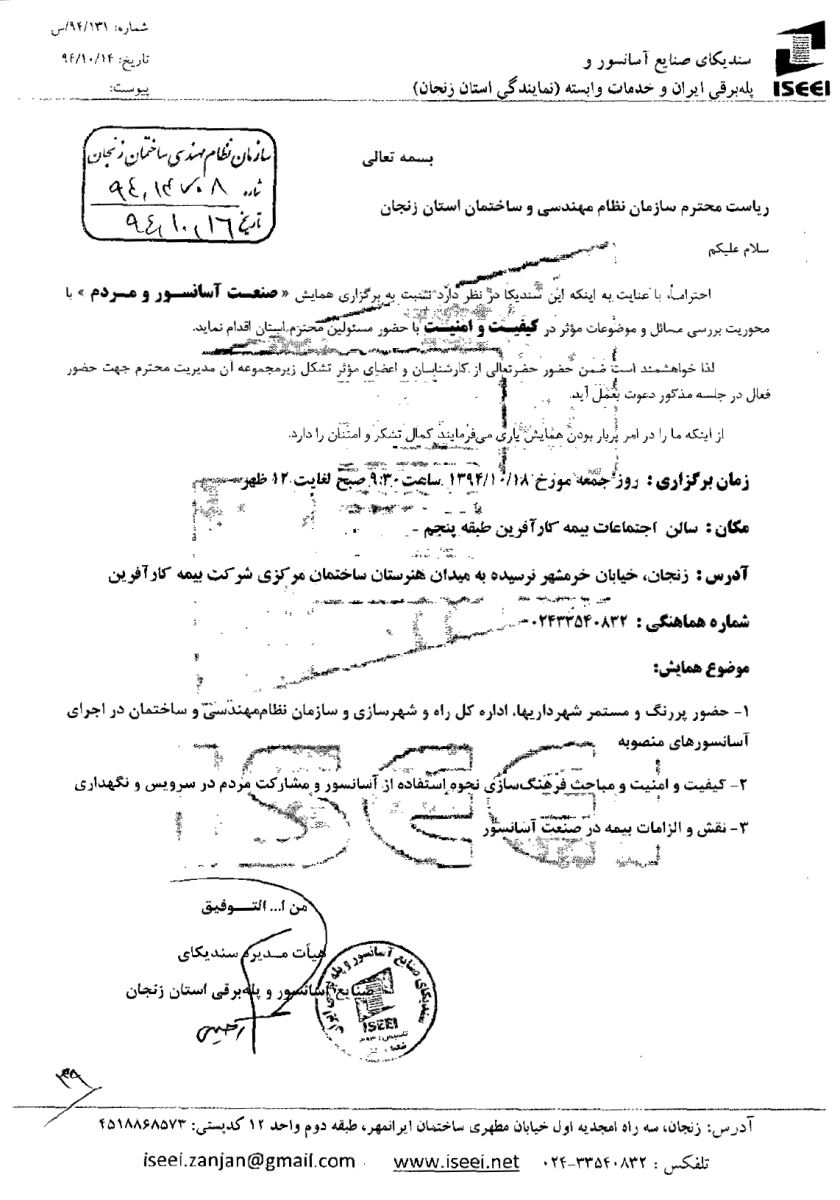 شماره: ۹۴/۱۳۱/س
تاریخ: ۹۴/۱۰/۱۴
پیوست:
سندیکای صنایع آسانسور و
پله‌برقی ایران و خدمات وابسته (نمایندگی استان زنجان)
ISEEI
سازمان نظام مهندسی ساختمان زنجان
شماره ۹۴،۱۴۷۰۸
تاریخ ۹۴،۱۰،۱۶
بسمه تعالی
ریاست محترم سازمان نظام مهندسی و ساختمان استان زنجان
سلام علیکم
احتراماً، با عنایت به اینکه این سندیکا در نظر دارد نسبت به برگزاری همایش « صنعت آسانسور و مردم » با
محوریت بررسی مسائل و موضوعات مؤثر در کیفیت و امنیت با حضور مسئولین محترم استان اقدام نماید.
لذا خواهشمند است ضمن حضور حضرتعالی از کارشناسان و اعضای مؤثر تشکل زیرمجموعه آن مدیریت محترم جهت حضور
فعال در جلسه مذکور دعوت بعمل آید.
از اینکه ما را در امر پربار بودن همایش یاری می‌فرمایند کمال تشکر و امتنان را دارد.
زمان برگزاری : روز جمعه مورخ ۱۳۹۴/۱۰/۱۸ ساعت ۹:۳۰ صبح لغایت ۱۲ ظهر
مکان : سالن اجتماعات بیمه کارآفرین طبقه پنجم
آدرس : زنجان، خیابان خرمشهر نرسیده به میدان هنرستان ساختمان مرکزی شرکت بیمه کارآفرین
شماره هماهنگی : ۰۲۴۳۳۵۴۰۸۳۲
موضوع همایش:
۱- حضور پررنگ و مستمر شهرداریها، اداره کل راه و شهرسازی و سازمان نظام‌مهندسی و ساختمان در اجرای
آسانسورهای منصوبه
۲- کیفیت و امنیت و مباحث فرهنگ‌سازی نحوه استفاده از آسانسور و مشارکت مردم در سرویس و نگهداری
۳- نقش و الزامات بیمه در صنعت آسانسور
من ا... التوفیق
هیأت مدیره سندیکای
صنایع آسانسور و پله‌برقی استان زنجان
سندیکای صنایع آسانسور و پله برقی ایران
ISEEI
۳۹
آدرس: زنجان، سه راه امجدیه اول خیابان مطهری ساختمان ایرانمهر، طبقه دوم واحد ۱۲ کدپستی: ۴۵۱۸۸۶۸۵۷۳
تلفکس : ۳۳۵۴۰۸۳۲-۰۲۴ www.iseei.net iseei.zanjan@gmail.com